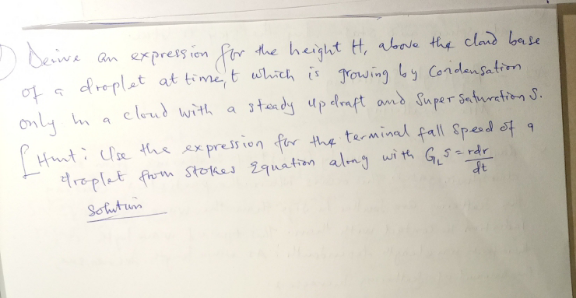 Derive an expression for the height H, above the cloud base
of a droplet at time, t which is growing by Condensation
only in a cloud with a steady updraft and Super Saturation S.
[Hint: Use the expression for the terminal fall Speed of a
droplet from Stokes Equation along with G_L S = rdr/dt
Solution